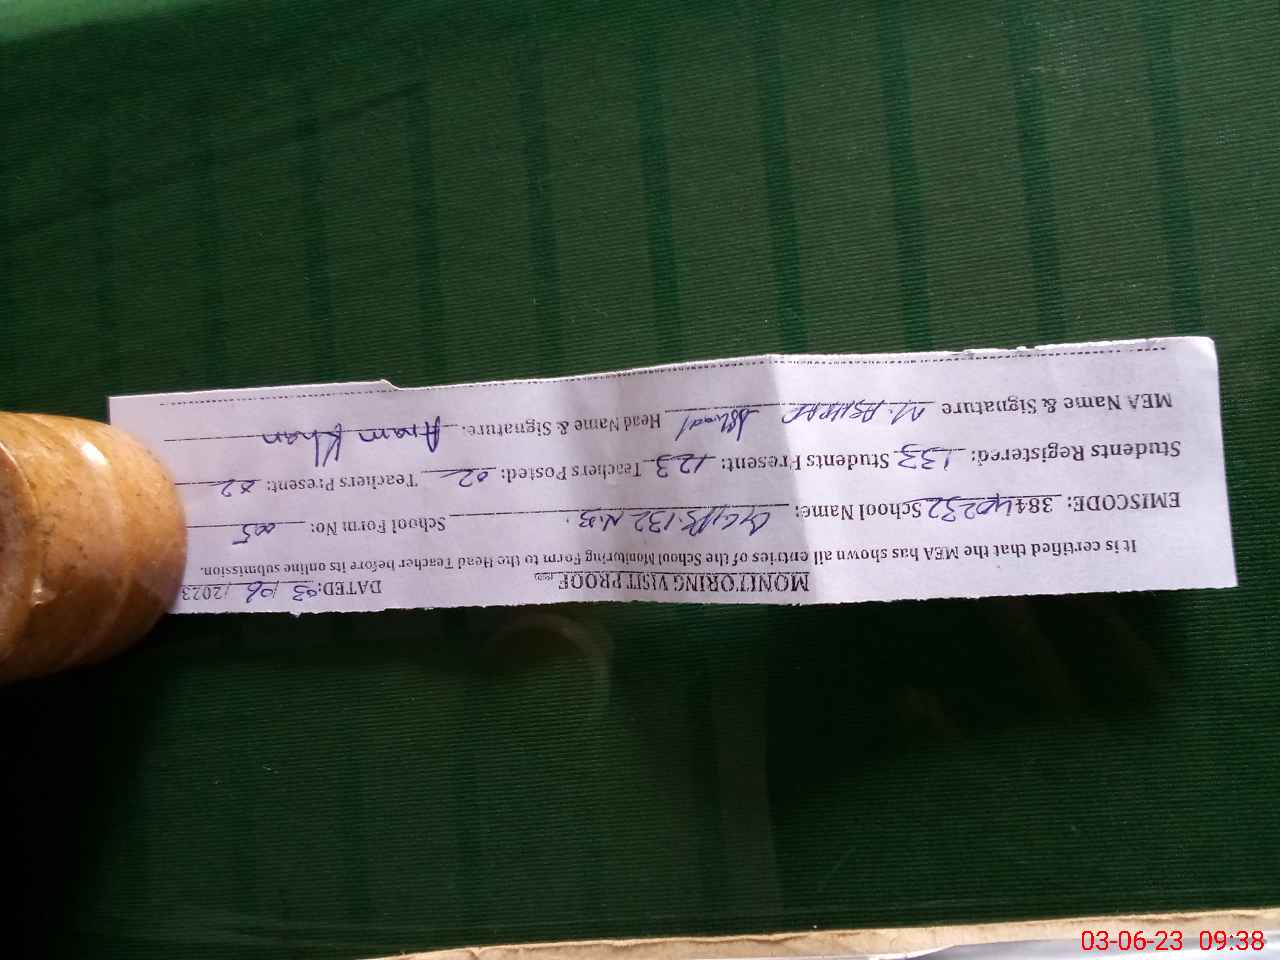 MONITORING VISIT PROOF DATED: 03/06/2023
It is certified that the MEA has shown all entries of the School Monitoring Form to the Head Teacher before its online submission.
EMISCODE: 38440232 School Name: GGPS 132 N.B. School Form No: 005
Students Registered: 133 Students Present: 123 Teachers Posted: 02 Teachers Present: 02
MEA Name & Signature M. ASHRAF Head Name & Signature: Anam Khan
03-06-23 09:38